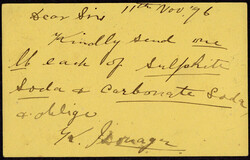 11th Nov '96
Dear Sirs
Kindly send me
lb each of Sulphite
Soda & Carbonate Soda
& oblige